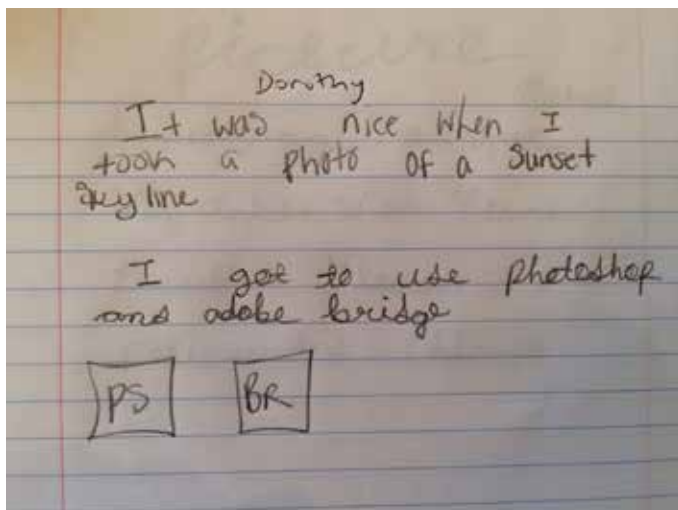 Dorothy
It was nice when I
toon a photo of a sunset
skyline
I got to use photoshop
and adobe bridge
PS BR